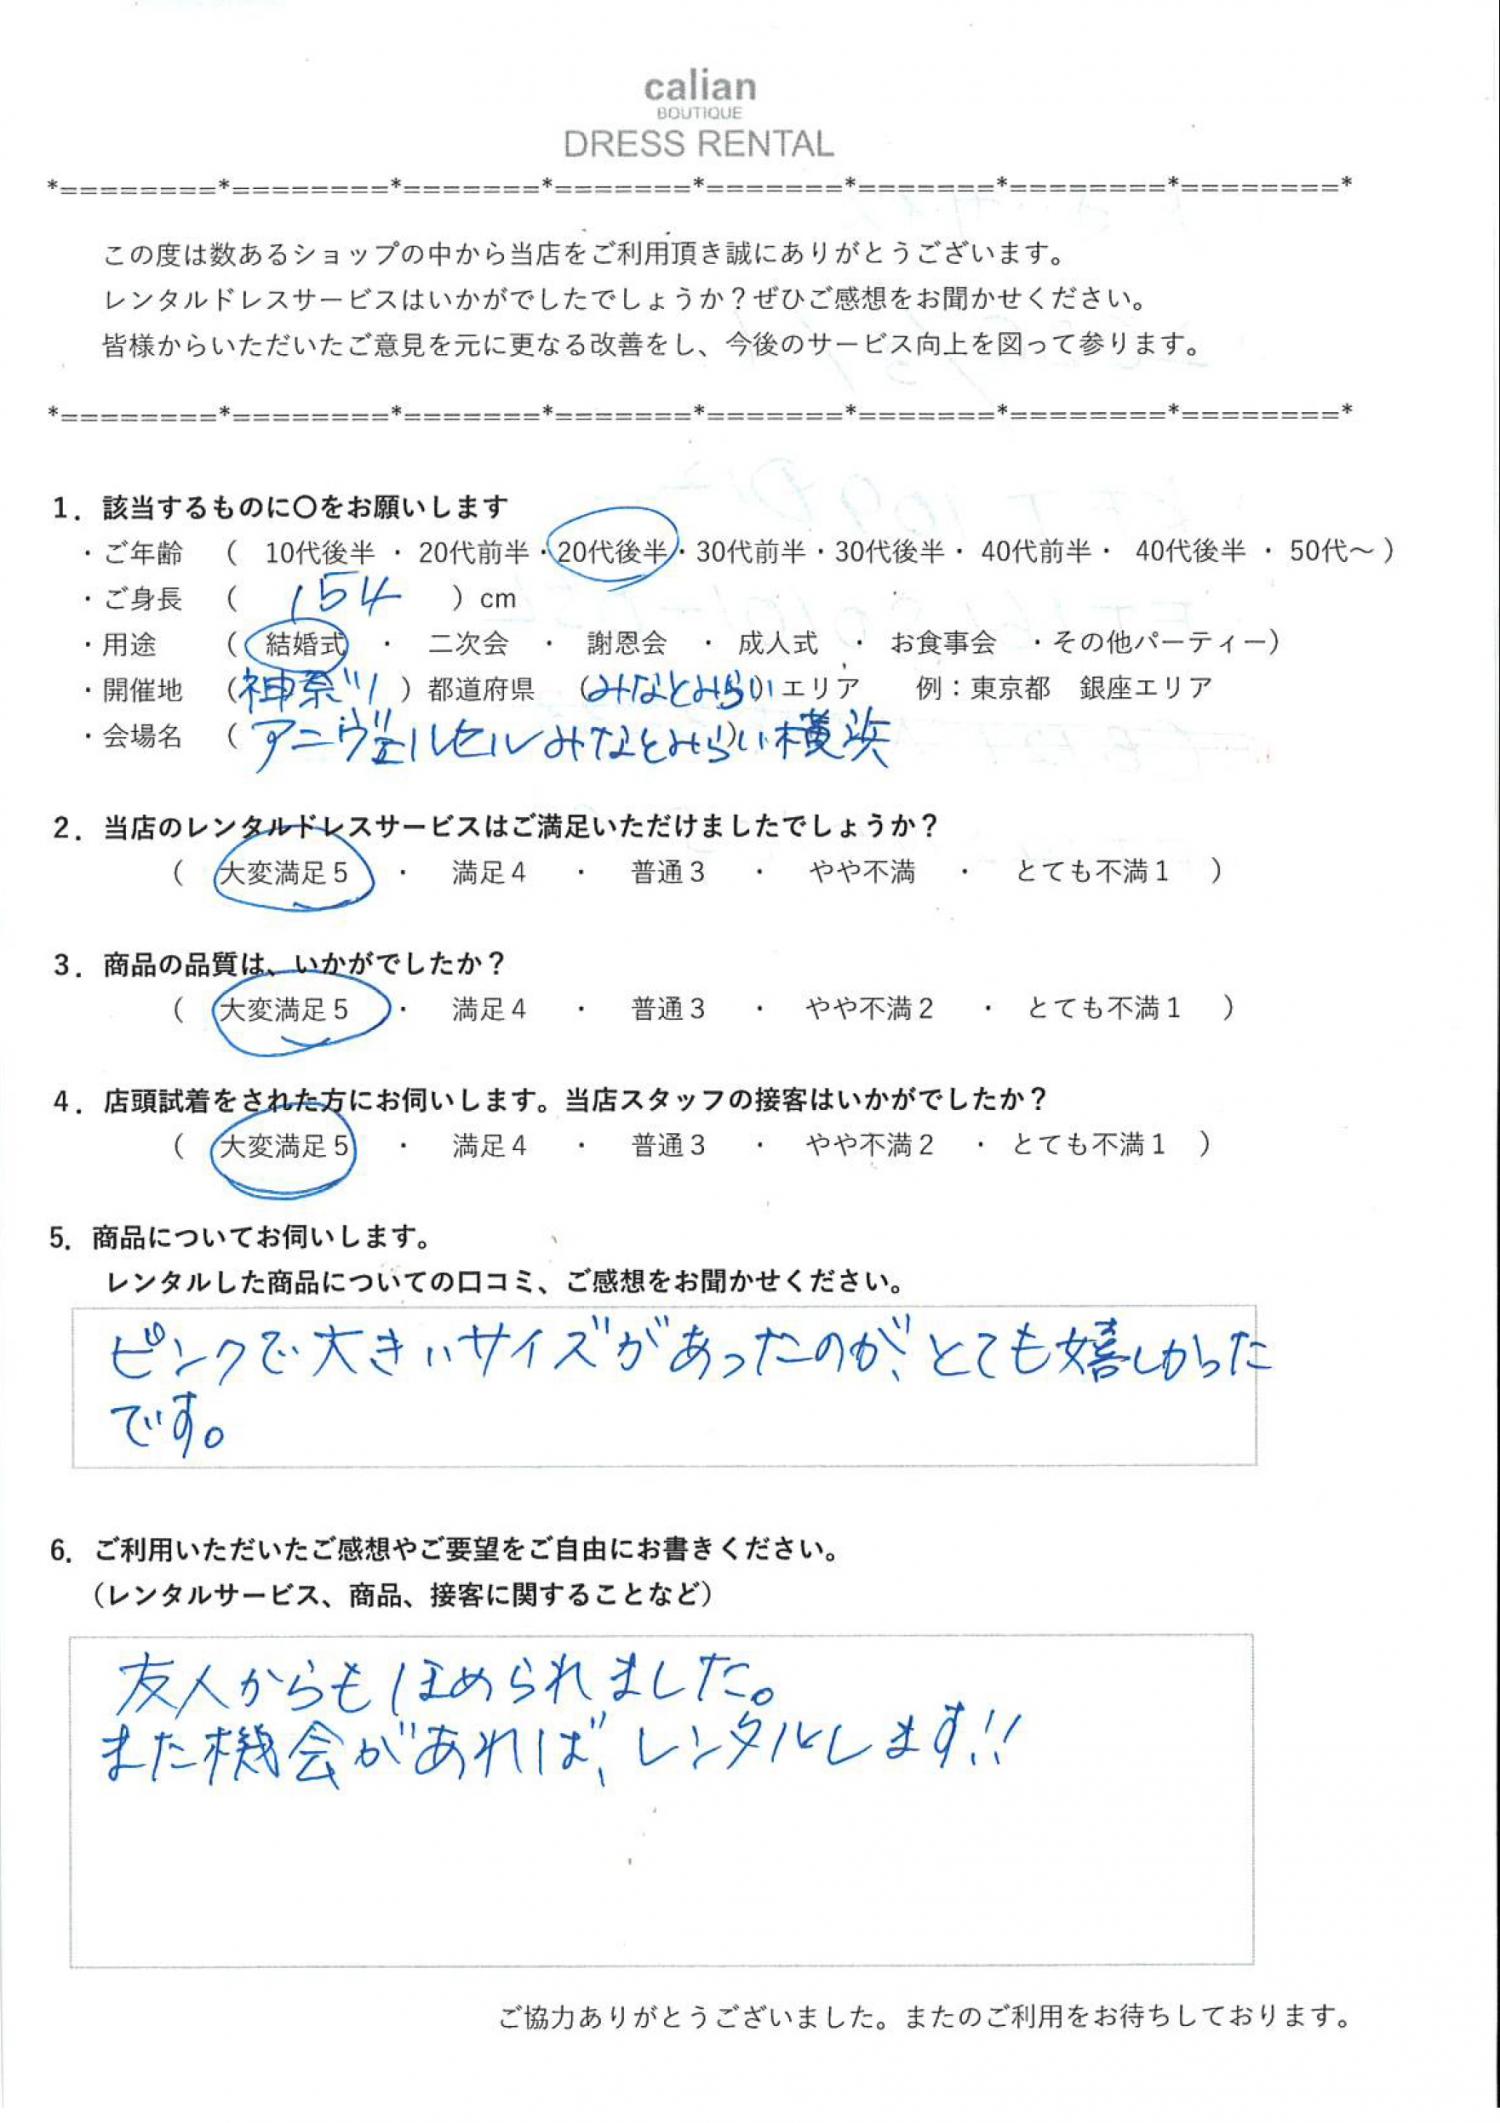 calian
BOUTIQUE
DRESS RENTAL
*========*========*=======*=======*=======*=======*========*========*
この度は数あるショップの中から当店をご利用頂き誠にありがとうございます。
レンタルドレスサービスはいかがでしたでしょうか？ぜひご感想をお聞かせください。
皆様からいただいたご意見を元に更なる改善をし、今後のサービス向上を図って参ります。
*========*========*=======*=======*=======*=======*========*========*
1．該当するものに〇をお願いします
・ご年齢 （ 10代後半 ・ 20代前半・20代後半・30代前半・30代後半・ 40代前半・ 40代後半 ・ 50代～ ）
・ご身長 （ 154 ）cm
・用途 （ 結婚式 ・ 二次会 ・ 謝恩会 ・ 成人式 ・ お食事会 ・その他パーティー）
・開催地 （神奈川 ）都道府県 （みなとみらい）エリア 例：東京都 銀座エリア
・会場名 （ アニヴェルセルみなとみらい横浜 ）
2．当店のレンタルドレスサービスはご満足いただけましたでしょうか？
（ 大変満足５ ・ 満足４ ・ 普通３ ・ やや不満 ・ とても不満１ ）
3．商品の品質は、いかがでしたか？
（ 大変満足５ ・ 満足４ ・ 普通３ ・ やや不満２ ・ とても不満１ ）
4．店頭試着をされた方にお伺いします。当店スタッフの接客はいかがでしたか？
（ 大変満足５ ・ 満足４ ・ 普通３ ・ やや不満２ ・ とても不満１ ）
5．商品についてお伺いします。
レンタルした商品についての口コミ、ご感想をお聞かせください。
ピンクで大きいサイズがあったのが、とても嬉しかった
です。
6．ご利用いただいたご感想やご要望をご自由にお書きください。
（レンタルサービス、商品、接客に関することなど）
友人からもほめられました。
また機会があれば、レンタルします!!
ご協力ありがとうございました。またのご利用をお待ちしております。